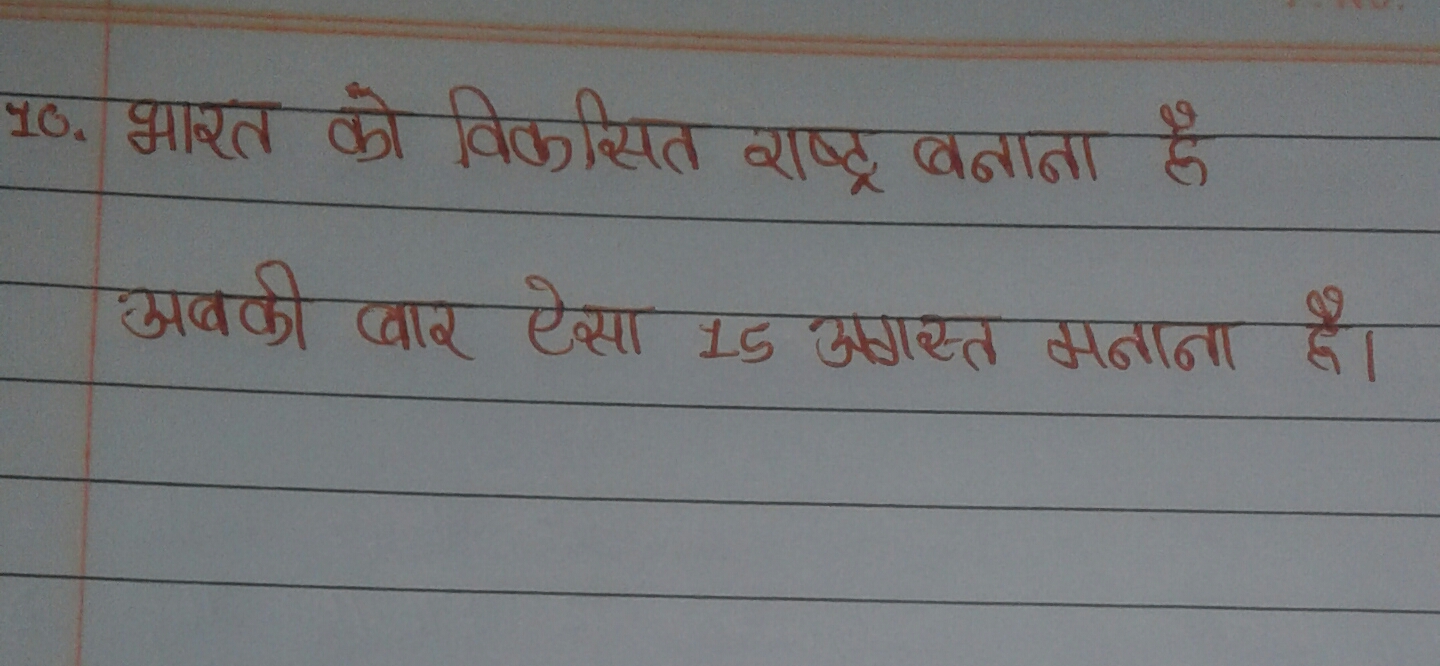 10. भारत को विकसित राष्ट्र बनाना है
अबकी बार ऐसा 15 अगस्त मनाना है।